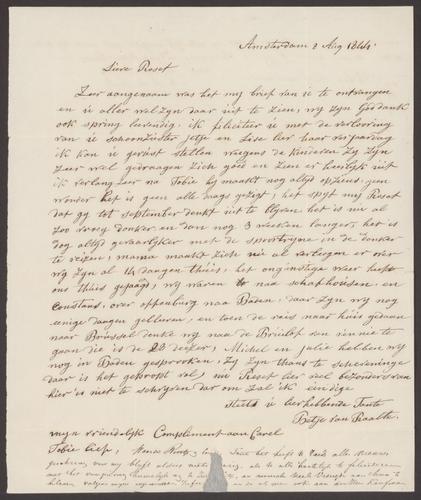 Amsterdam 2 Aug 1844.
Lieve Roset
Zeer aangenaam was het my brief van ie te ontvangen
en ie aller wel zyn daar uit te zien, wy zyn God dank
ook spring levendig: ik feliciteer ie met de verloving
van ie schoonzuster Jetje en Lise her haar verjaardag
ik kan ie gerust stellen wegens de kinderen Zy Zyn
Zeer wel gedragen Zich goed en Zien er heerlyk uit
ik verlang Zeer na Tobie hy maakt nog altyd opziens, geen
wonder het is geen alle daags gezigt, het spyt my Roset
dat gy tot September denkt uit te blyven het is nu al
Zoo vroeg donker en dan nog 3 weeken langer, het is
dog altyd gevaarlyker met de spoortryne in de donker
te reizen, mama maakt zich nu al verlegen er over
wy Zyn al 14 dagen thuis, het ongunstige weer heeft
ons thuis gejaagt, wy waren na Schafhousen, en
Constans, over offenburg naa Baden, daar Zyn wy nog
eenige dangen gebleven, en toen de reis naar huis gedaan
naar Brussel denke wy naa de Bruiloft van
gaan die is de 23 dezer, Michel en Julie hebben wy
nog in Baden gesprooken, Zy Zyn thans te Scheveninge
daar is het gepropt vol, nu Roset Zeer veel byzonders van
hier is niet te schryven dar om Zal ik eindige
Steeds ie liefhebbende Tante
Betje van Raalte.
myn vriendelyk Compliment aan Carel
Tobie lief,